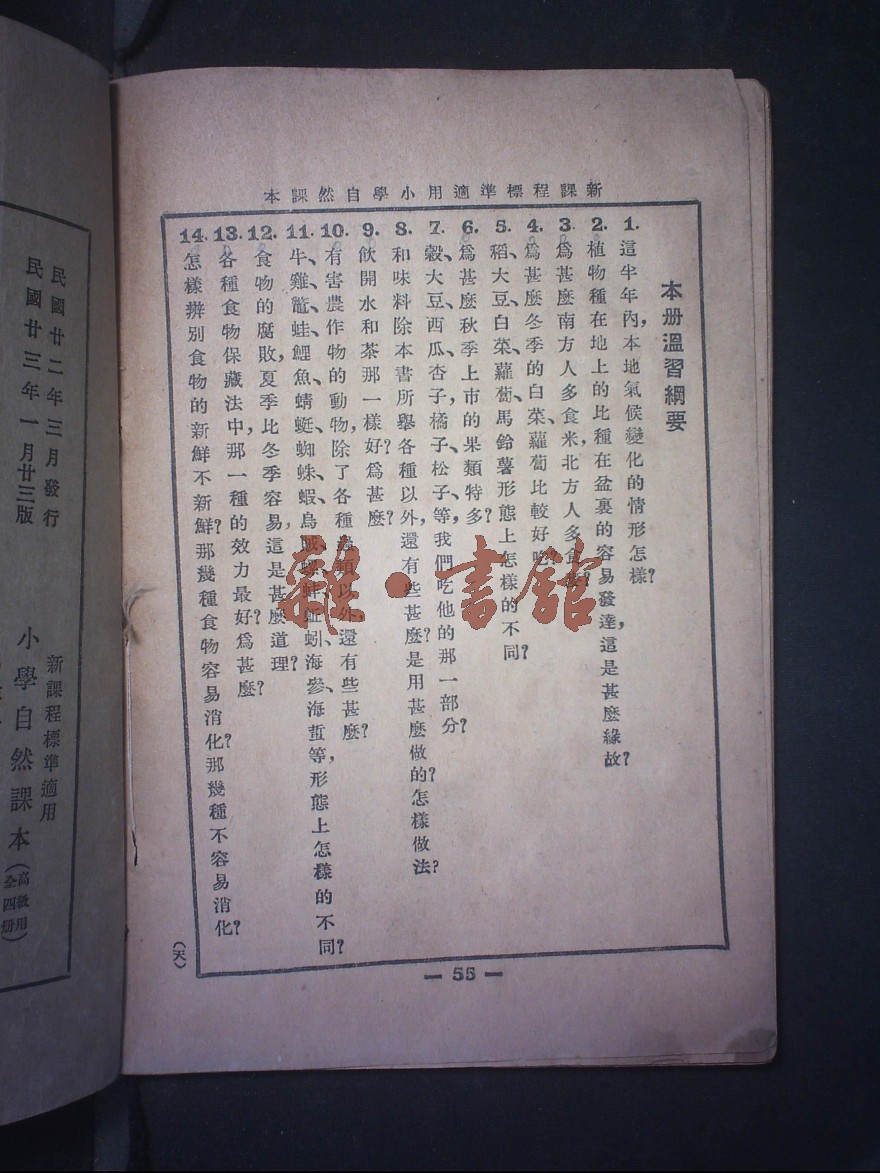 新課程標準適用小學自然課本
本册溫習綱要
1. 這半年內，本地氣候變化的情形怎樣？
2. 植物種在地上的比種在盆裏的容易發達，這是甚麼緣故？
3. 爲甚麼南方人多食米，北方人多食
4. 爲甚麼冬季的白菜、蘿蔔比較好吃
5. 稻、大豆、白菜、蘿蔔、馬鈴薯形態上怎樣的不同？
6. 爲甚麼秋季上市的果類特多？
7. 穀、大豆、西瓜、杏子、橘子、松子、等，我們吃他的那一部分？
8. 和味料除本書所舉各種以外，還有些甚麼？是用甚麼做的？怎樣做法？
9. 飲開水和茶那一樣好？爲甚麼？
10. 有害農作物的動物，除了各種蟲類以外，還有些甚麼？
11. 牛、雞、鼈、蛙、鯉魚、蜻蜓、蜘蛛、蝦、烏賊、螺、蚌、蚯蚓、海參、海蜇等，形態上怎樣的不同？
12. 食物的腐敗，夏季比冬季容易，這是甚麼道理？
13. 各種食物保藏法中，那一種的效力最好？爲甚麼？
14. 怎樣辨别食物的新鮮不新鮮？那幾種食物容易消化？那幾種不容易消化？
(天)
— 55 —
民國廿二年三月發行
民國廿三年一月廿三版
新課程標準適用
小學自然課本（高級用全四册）
雜·書館